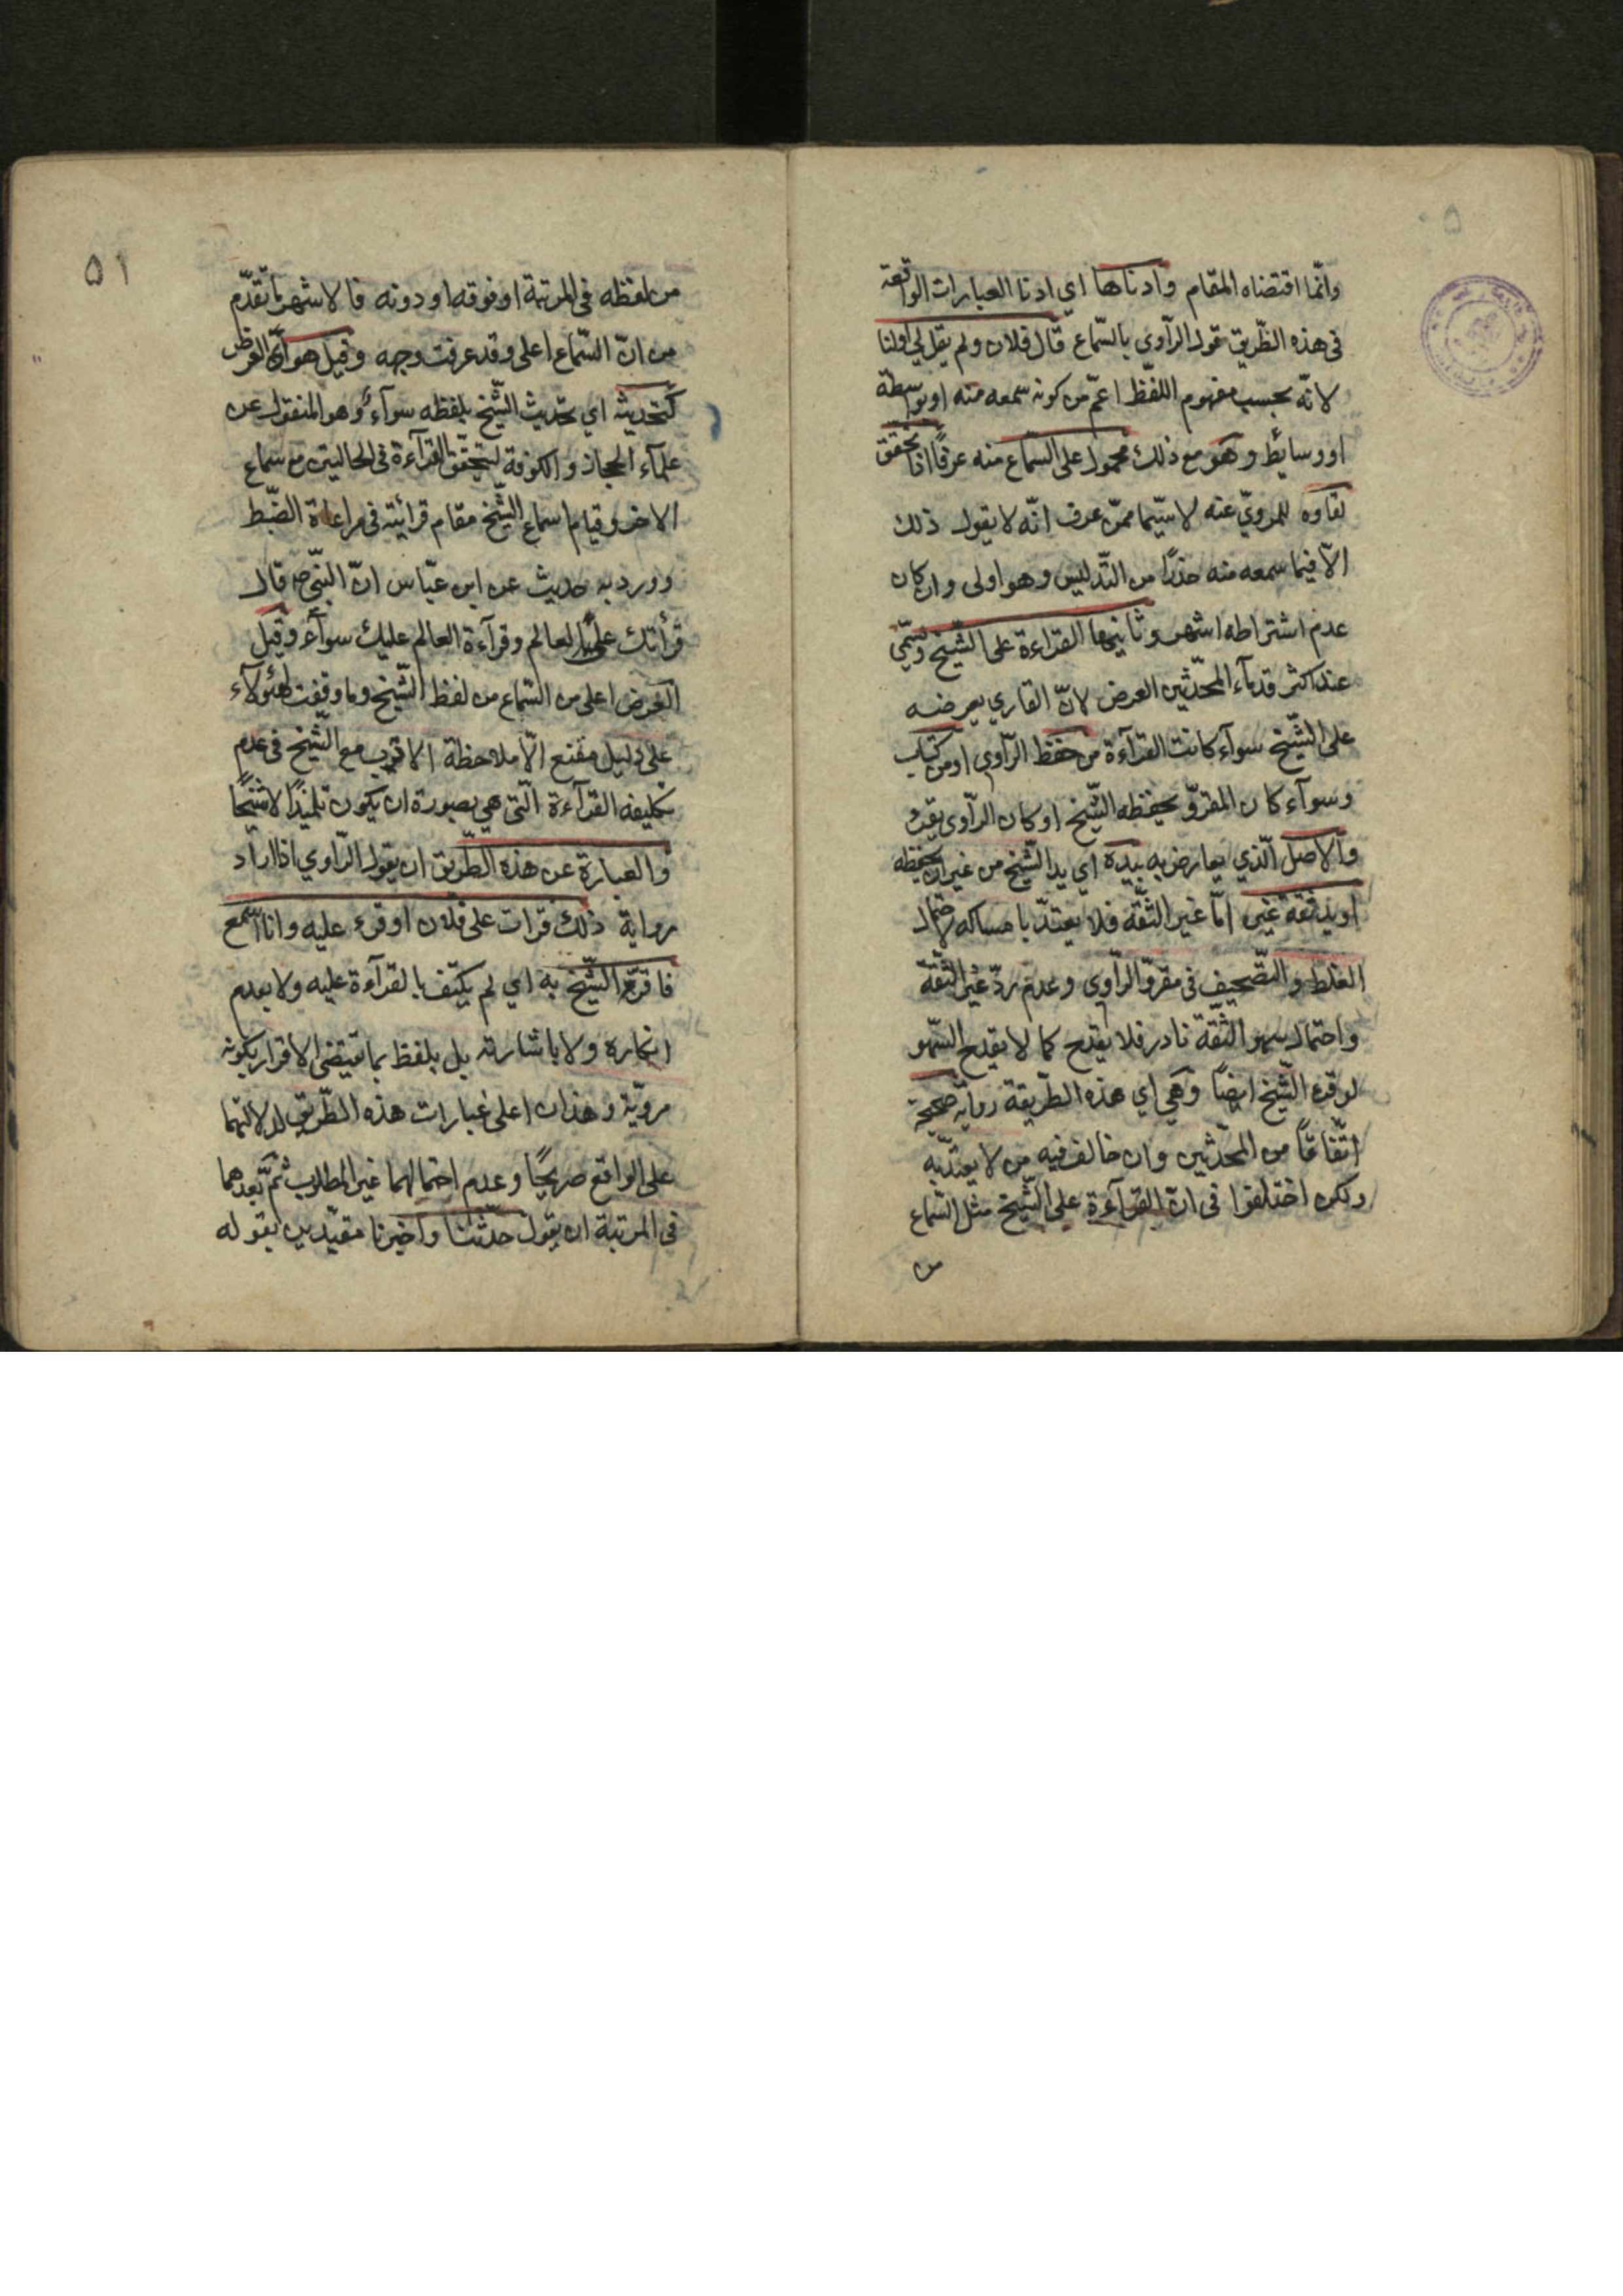 وانّما اقتضاه المقام وادناها اي ادنا العبارات الواقعة
فى هذه الطّريق قول الرّاوى بالسّماع قال فلان ولم يقل لي اولنا
لانّه بحسب مفهوم اللفظ اعمّ من كونه سمعه منه او بواسطة
او وسائط وهو مع ذلك محمول على السّماع منه عرفًا اذا تحقّق
لقاؤه للمرويّ عنه لا سيّما ممّن عرف انّه لا يقول ذلك
الاّ فيما سمعه منه حذرًا من التّدليس وهو اولى وان كان
عدم اشتراطه اشهر وثانيها القراءة على الشّيخ وتسمّى
عند اكثر قدمآء المحدّثين العرض لانّ القاري يعرضه
على الشّيخ سوآء كانت القرآءة من حفظ الرّاوي او من كتاب
وسوآء كان المقروّ بحفظه الشّيخ او كان الرّاوى يقرء
والاصل الّذي يعارض به بيده اي يد الشّيخ من غير ان يحفظه
او يد ثقة غيره امّا غير الثّقة فلا يعتدّ بامساكه لاحتمال
الغلط والتّصحيف فى مقروّ الرّاوي وعدم ردّ غير الثّقة
واحتمال سهو الثّقة نادر فلا يقدح كما لا يقدح السّهو
لو قرء الشّيخ ايضًا وهي اي هذه الطّريقة رواية صحيحة
اتّفاقًا من المحدّثين وان خالف فيه من لا يعتدّ به
ولكن اختلفوا فى انّ القرآءة على الشّيخ مثل السّماع
من
۵۱
من لفظه فى المرتبة او فوقه او دونه فالاشهر ما تقدّم
من انّ السّماع اعلى وقد عرفت وجهه وقيل هو اي العرض
كتحديثه اي تحديث الشّيخ بلفظه سوآء وهو المنقول عن
علمآء الحجاز والكوفة لتحقّق القرآءة فى الحالتين مع سماع
الاخر وقيام سماع الشّيخ مقام قرائته فى مراعاة الضّبط
وورد به حديث عن ابن عبّاس انّ النّبي ص قال
قرأتك على العالم وقرآءة العالم عليك سوآء وقيل
العرض اعلى من السّماع من لفظ الشّيخ وما وقفت لهؤلآء
على دليل مقنع الاّ ملاحظة الادب مع الشّيخ فى عدم
تكليفه القرآءة الّتى هي بصورة ان يكون تلميذًا لا شيخًا
والعبارة عن هذه الطّريق ان يقول الرّاوي اذا اراد
رواية ذلك قرات على فلان او قرء عليه وانا اسمع
فاقرّ الشّيخ به اي لم يكتف بالقرآءة عليه ولا بعدم
انكاره ولا باشارته بل بلفظ بما يقتضى الاقرار بكونه
مرويّه وهذان اعلى عبارات هذه الطّريق لدلالتهما
على الواقع صريحًا وعدم احتمالهما غير المطلوب ثمّ بعدهما
فى المرتبة ان يقول حدّثنا واخبرنا مقيّدين بقوله